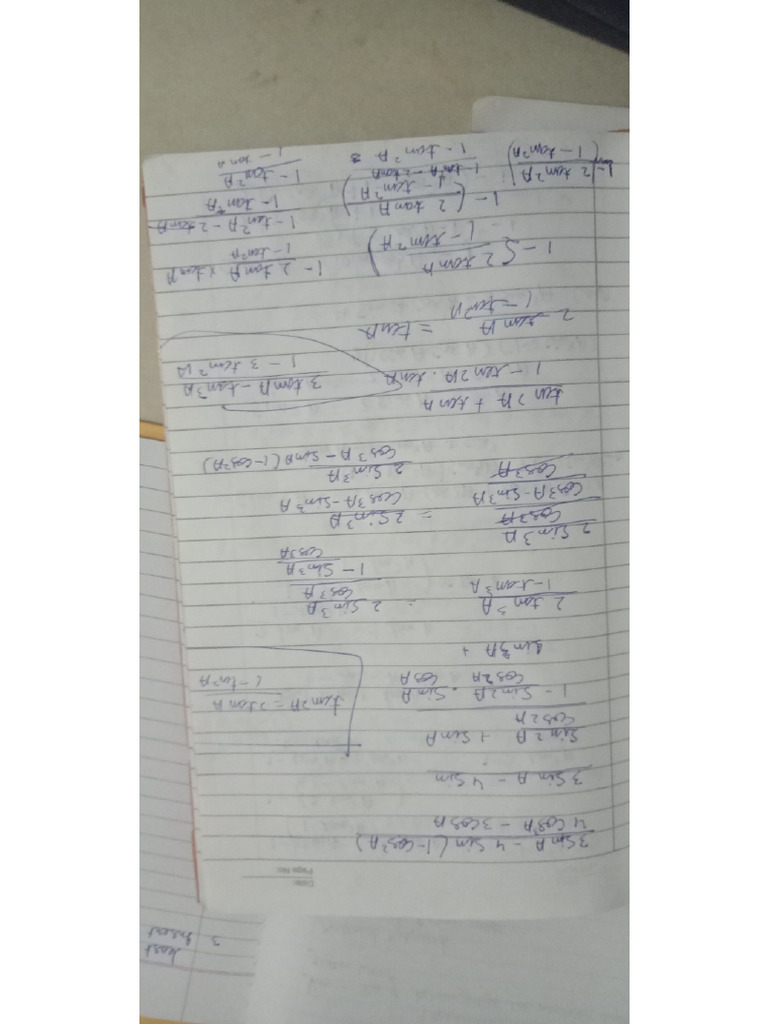 Date:
Page No:
3 Sin A - 4 Sin (1 - Cos²A)
4 Cos³A - 3 Cos A
3 Sin A - 4 Sin
Sin 2A + Sin A
Cos 2A
1 - Sin 2A . Sin A
Cos 2A Cos A
tan 2A = 2 tan A
1 - tan²A
Sin³A +
2 tan³A
1 - tan³A
2 Sin³A
Cos³A
1 - Sin³A
Cos³A
2 Sin³A
Cos³A
Cos³A - Sin³A
Cos³A
= 2 Sin³A
Cos³A - Sin³A
2 Sin³A
Cos³A - Sin A (1 - Cos²A)
tan 2A + tan A
1 - tan 2A . tan A
3 tan A - tan³A
1 - 3 tan²A
2 tan A
1 - tan²A
= tan A
1 - ( 2 tan A
1 - tan²A )
1 - 2 tan A × tan A
1 - tan²A
1 - ( 2 tan A
1 - tan²A )
1 - tan²A - 2 tan A
1 - tan²A
1 - 2 tan²A
( 1 - tan²A )
1 - tan²A - 2 tan A
1 - tan²A
1 - tan²A
1 - tan A
3
least